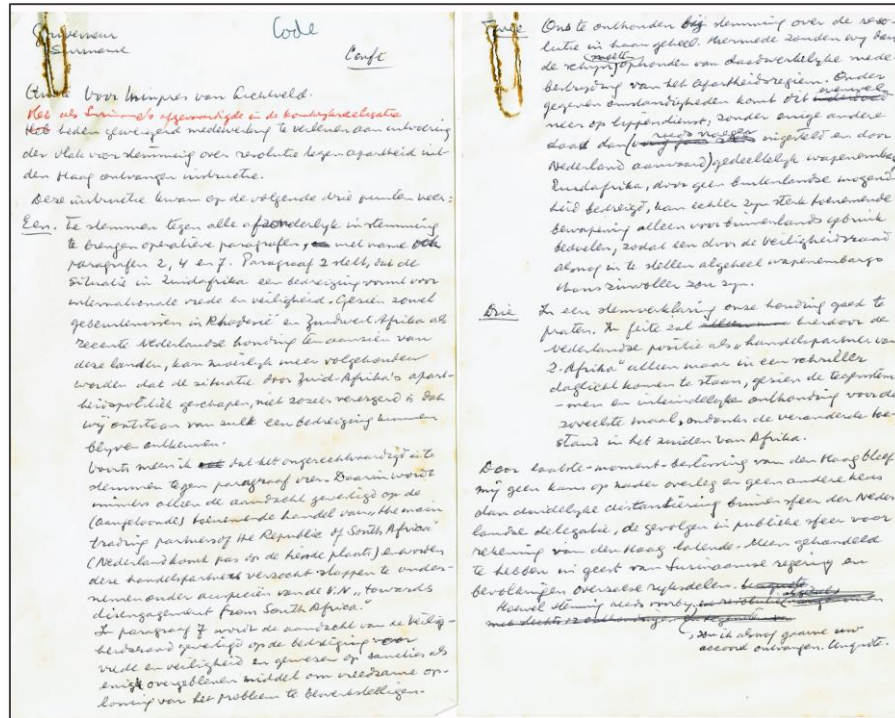 Gouverneur
Suriname
Code
Confi
Voor Minpres van Lichtveld.
Heb als Suriname's afgevaardigde in de Koninkrijksdelegatie
heden geweigerd medewerking te verlenen aan uitvoering
der vlak voor stemming over resolutie tegen apartheid uit
den Haag ontvangen instructie.
Deze instructie kwam op de volgende drie punten neer:
Een. te stemmen tegen alle afzonderlijk in stemming
te brengen operatieve paragrafen, met name ook
paragrafen 2, 4 en 7. Paragraaf 2 stelt, dat de
situatie in Zuidafrika een bedreiging vormt voor
internationale vrede en veiligheid. Gezien zowel
gebeurtenissen in Rhodesië en Zuidwest Afrika als
recente Nederlandse houding ten aanzien van
deze landen, kan moeilijk meer volgehouden
worden dat de situatie door Zuid-Afrika's apart-
heidspolitiek geschapen, niet zozeer verergerd is dat
wij ontstaan van zulk een bedreiging kunnen
blijven ontkennen.
Voorts meen ik dat het ongerechtvaardigd is te
stemmen tegen paragraaf vier. Daarin wordt
immers alleen de aandacht gevestigd op de
(aangetoonde) toenemende handel van "the main
trading partners of the Republic of South Africa"
(Nederland komt pas op de plaats) en worden
deze handelspartners verzocht stappen te onder-
nemen onder auspiciën van de V.N. "towards
disengagement from South Africa."
In paragraaf 7 wordt de aandacht van de Veilig-
heidsraad gevestigd op de bedreiging voor
vrede en veiligheid en gewezen op sancties als
enig overgebleven middel om vreedzame op-
lossing van het probleem te bewerkstelligen.
Twee Ons te onthouden bij stemming over de reso-
lutie in haar geheel. Hiermede zouden wij dan
de schijn moeten ophouden van daadwerkelijke mede-
bestrijding van het Apartheidsregiem. Onder
gegeven omstandigheden komt dit evenwel
neer op lippendienst; zonder enige andere
daad dan (reeds ingesteld en door
Nederland aanvaard) gedeeltelijk wapenembargo
Zuidafrika, door geen buitenlandse mogend-
heid bedreigd, kan echter zijn sterk toenemende
bewapening alleen voor binnenlands gebruik
bedoelen, zodat een door de Veiligheidsraad
alsnog in te stellen algeheel wapenembargo
thans zinvoller zou zijn.
Drie In een stemverklaring onze houding goed te
praten. In feite zal hierdoor de
Nederlandse positie als "handelspartner van
Z. Afrika" alleen maar in een schriller
daglicht komen te staan, gezien de tegenstem-
-men en uiteindelijke onthouding voor de
zoveelste maal, ondanks de veranderde toe-
stand in het zuiden van Afrika.
Door laatste-moment-beslissing van den Haag bleef
mij geen kans op nader overleg en geen andere keus
dan duidelijke distantiëring binnen sfeer der Neder-
landse delegatie, de gevolgen in publieke sfeer voor
rekening van den Haag latende. Meen gehandeld
te hebben in geest van Surinaamse regering en
bevolkingen overzeese rijksdelen.
Hoewel stemming reeds voorbij,
, zou ik alsnog gaarne uw
accoord ontvangen.